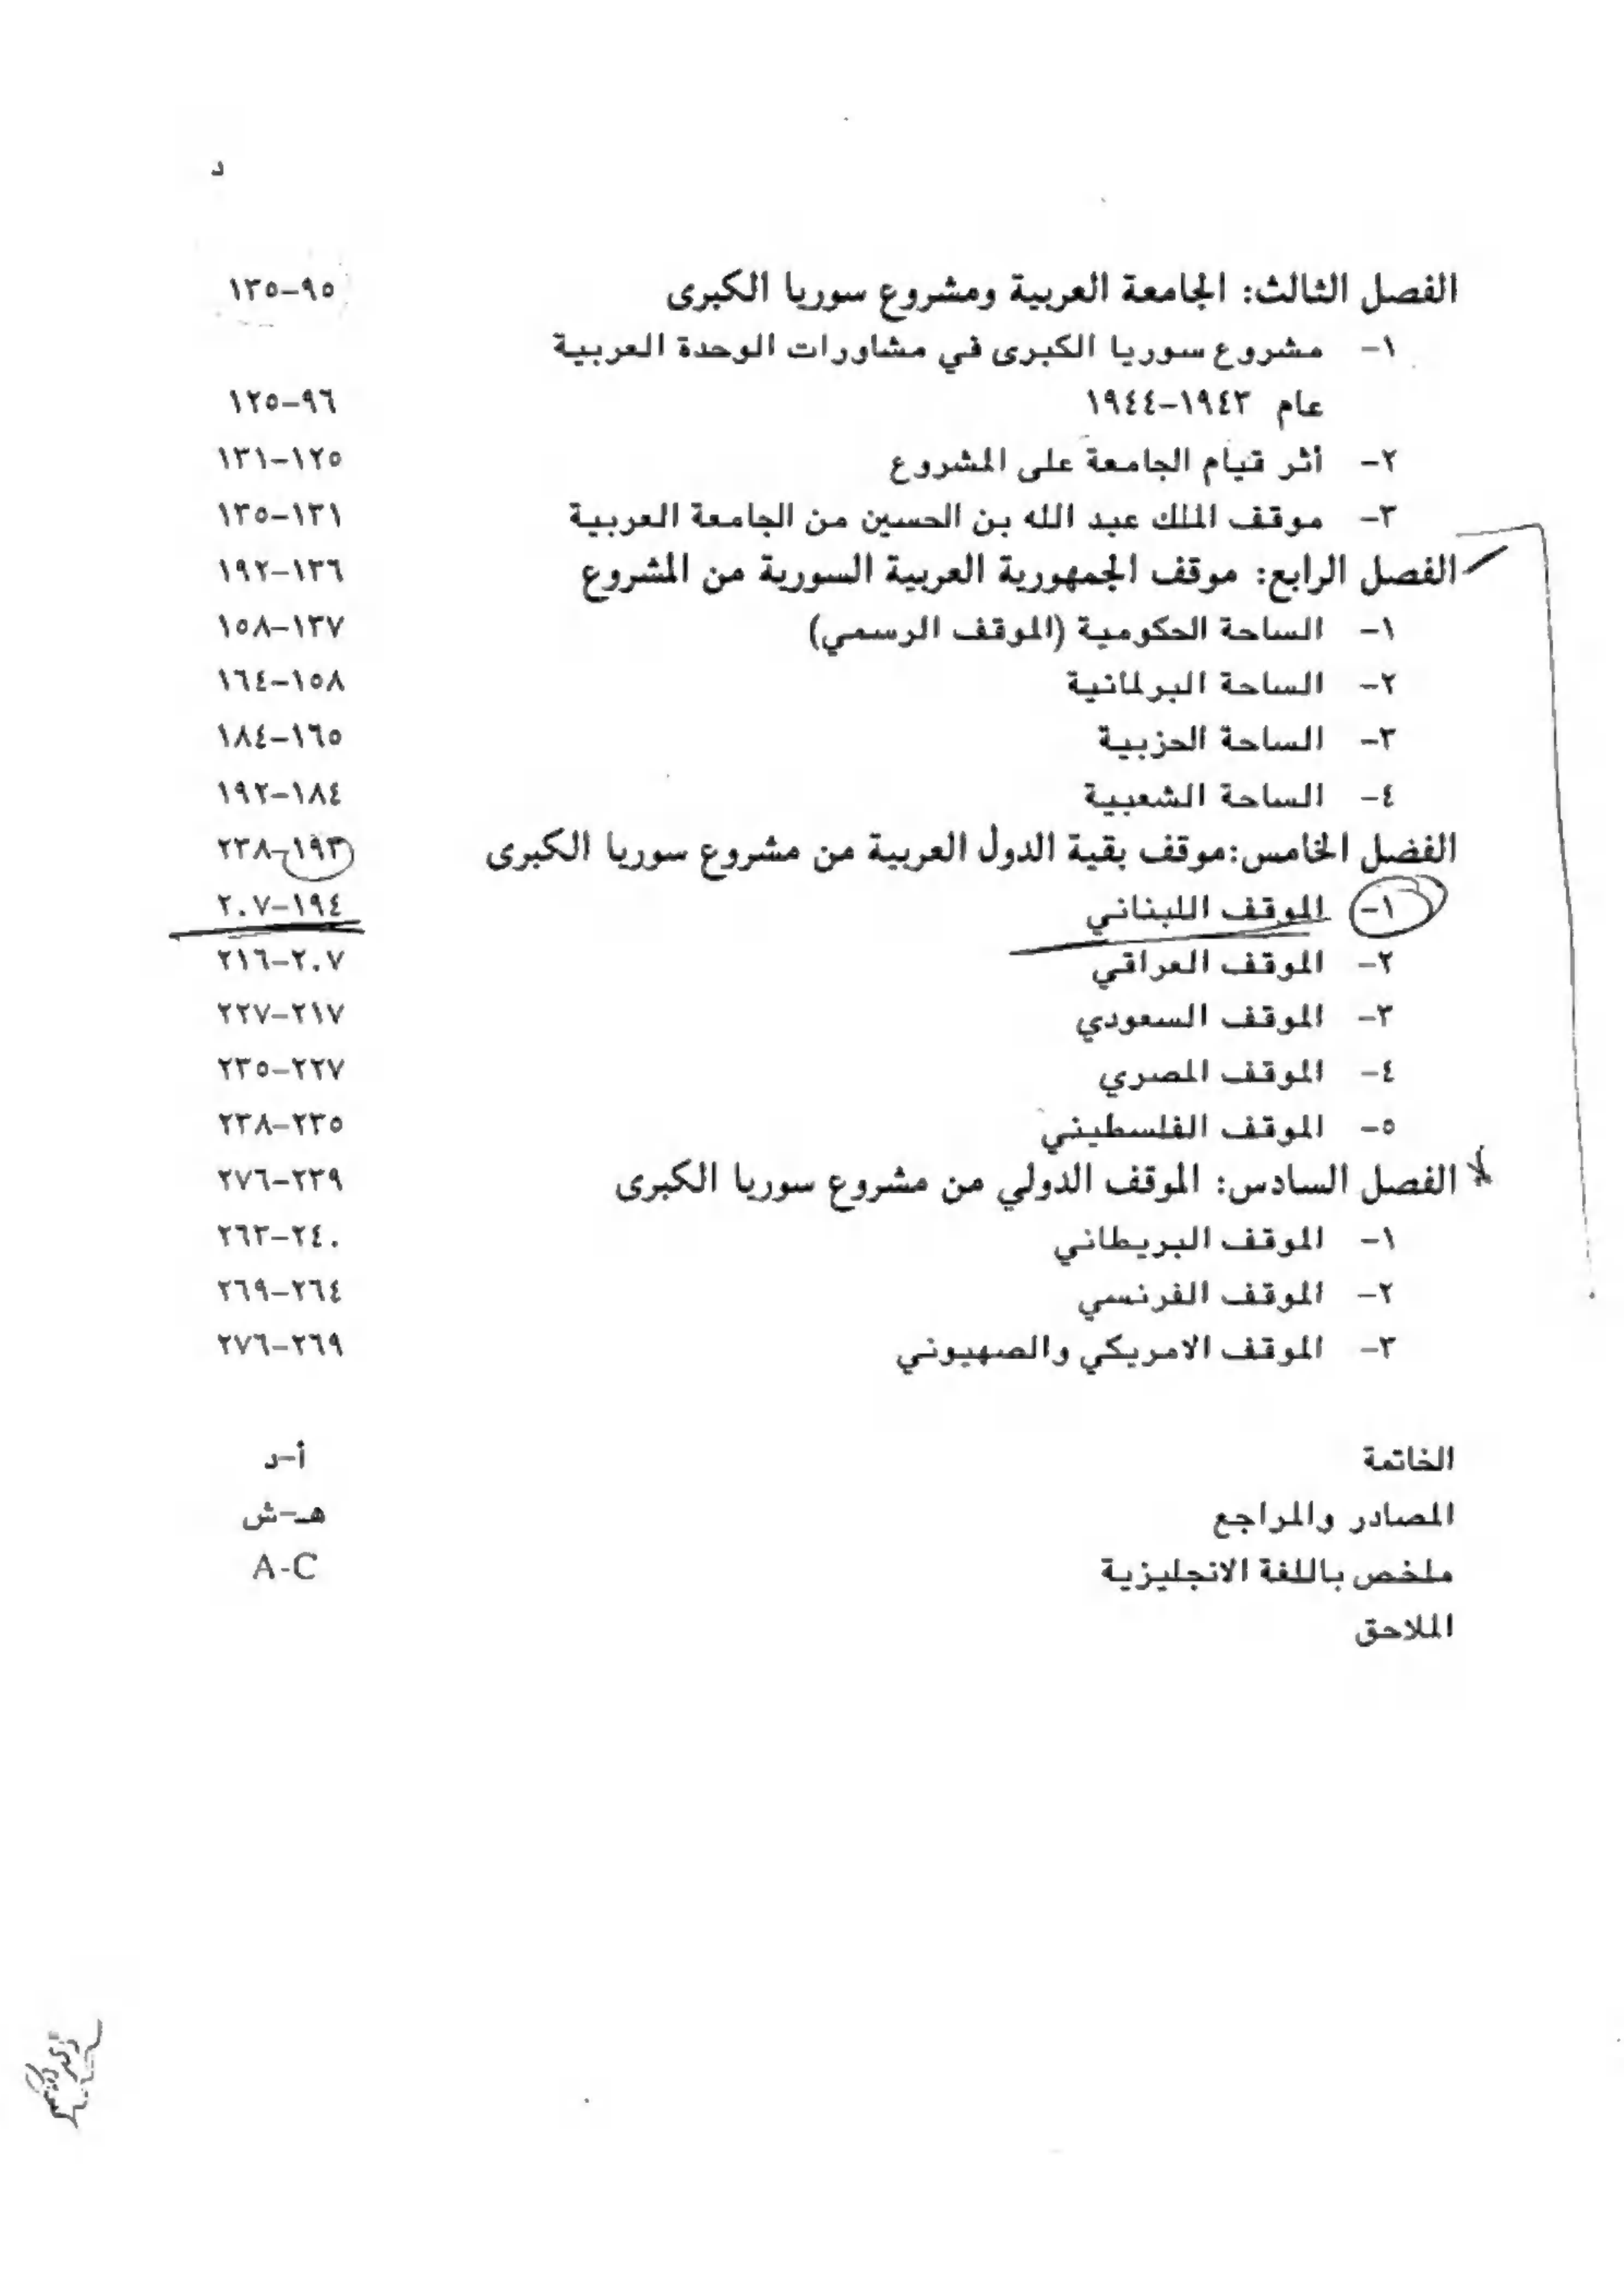 د
الفصل الثالث: الجامعة العربية ومشروع سوريا الكبرى ٩٥-١٣٥
١- مشروع سوريا الكبرى في مشاورات الوحدة العربية
عام ١٩٤٣-١٩٤٤ ٩٦-١٢٥
٢- أثر قيام الجامعة على المشروع ١٢٥-١٣١
٣- موقف الملك عبد الله بن الحسين من الجامعة العربية ١٣١-١٣٥
الفصل الرابع: موقف الجمهورية العربية السورية من المشروع ١٣٦-١٩٢
١- الساحة الحكومية (الموقف الرسمي) ١٣٧-١٥٨
٢- الساحة البرلمانية ١٥٨-١٦٤
٣- الساحة الحزبية ١٦٥-١٨٤
٤- الساحة الشعبية ١٨٤-١٩٢
الفضل الخامس:موقف بقية الدول العربية من مشروع سوريا الكبرى ١٩٣-٢٣٨
١- الموقف اللبناني ١٩٤-٢٠٧
٢- الموقف العراقي ٢٠٧-٢١٦
٣- الموقف السعودي ٢١٧-٢٢٧
٤- الموقف المصري ٢٢٧-٢٣٥
٥- الموقف الفلسطيني ٢٣٥-٢٣٨
الفصل السادس: الموقف الدولي من مشروع سوريا الكبرى ٢٣٩-٢٧٦
١- الموقف البريطاني ٢٤٠-٢٦٣
٢- الموقف الفرنسي ٢٦٤-٢٦٩
٣- الموقف الامريكي والصهيوني ٢٦٩-٢٧٦
الخاتمة أ-د
المصادر والمراجع هـ-ش
ملخص باللغة الانجليزية A-C
الملاحق